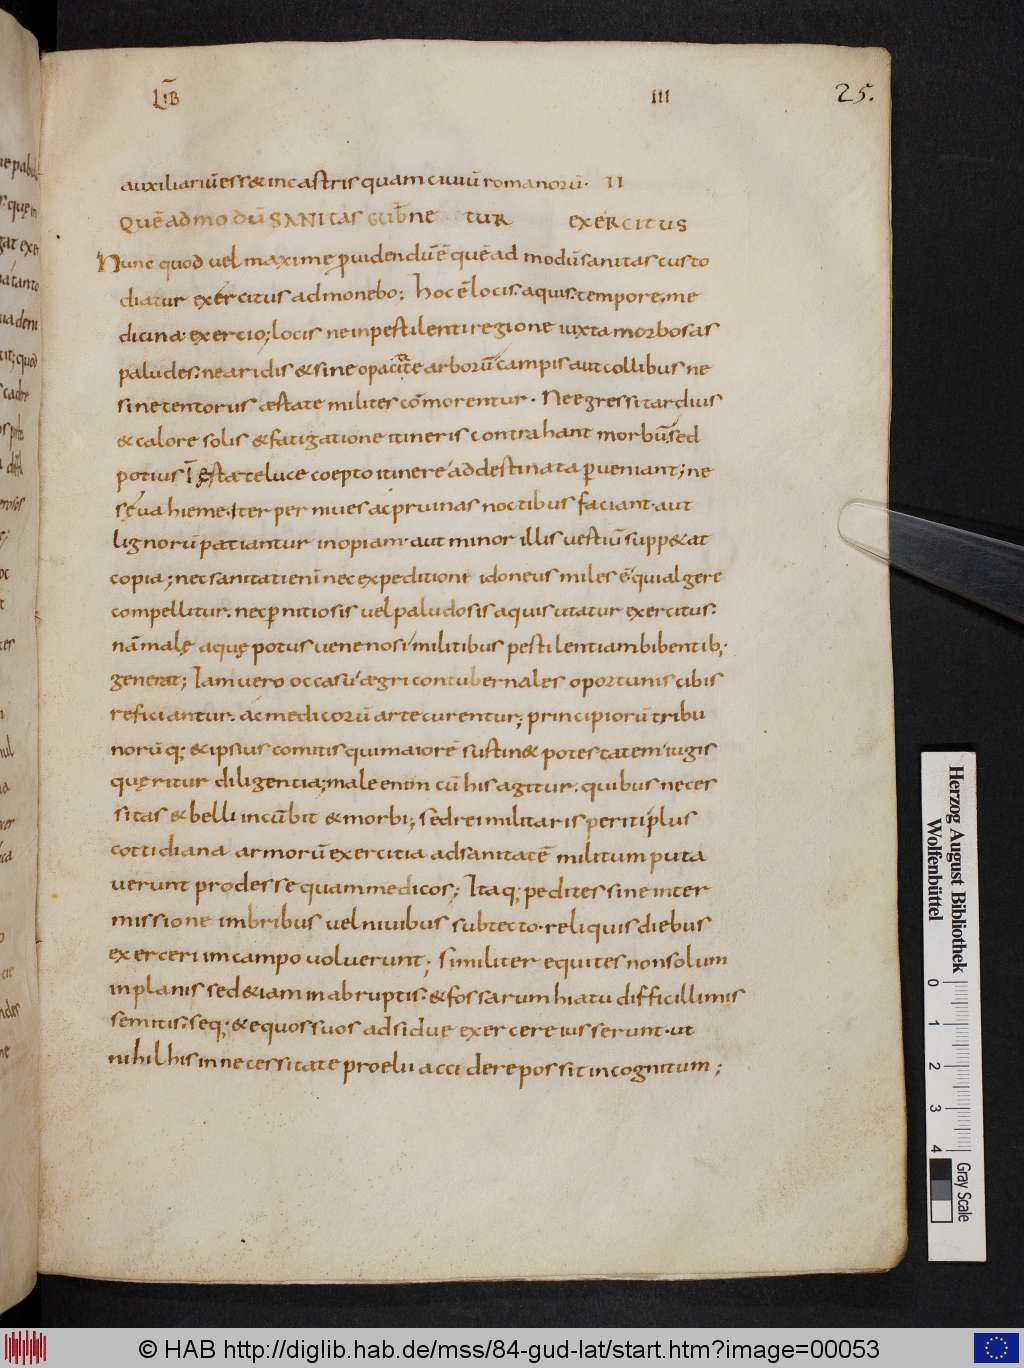 LIB̄ III 25.
auxiliariū ess& in castris quam ciuiū romanorū· II
Quē ad mo dū SANITAS GUB̄NE TUR EXERCITUS
Nunc quod uel maxime ꝓuidendū ē quē ad modū sanitas custo
diatur exercitus admonebo; hoc ē locis· aquis· tempore· me
dicina· exercio; locis ne in pestilenti regione iuxta morbosas
paludes· ne aridis & sine opacitate arborū campis aut collibus ne
sine tentoriis æstate milites cōmorentur· Ne egressi tardius
& calore solis & fatigatione itineris contrahant morbū sed
potius ī ęstate te luce coepto itinere ad destinata ꝑueniant; ne
sęua hieme· iter per niues ac pruinas noctibus faciant· aut
lignorū patiantur inopiam· aut minor illis uestiū supp&at
copia; nec sanitati enī nec expeditioni idoneus miles ē qui algere
compellitur· nec ꝑnitiosis uel paludosis aquis utatur exercitus·
nā malę aquę potus uenenosi militibus pestilentiam bibentib;·
generat; Iam uero occasu ægri contubernales oportunis cibis
reficiantur· ac medicorū arte curentur; principiorū tribu
norū q; & ipsius comitis qui maiorē sustin& potestatem iugis
quęritur diligentia; male enim cū his agitur· quibus neces
sitas & belli incūbit & morbi; sed rei militaris periti plus
cottidiana armorū exercitia ad sanitatē militum puta
uerunt prodesse quam medicos; Itaq; pedites sine inter
missione imbribus uel niuibus sub tecto· reliquis diebus
exerceri im campo uoluerunt; similiter equites non solum
in planis sed &iam in abruptis· & fossarum hiatu difficillimis
semitis· seq; & equos suos adsidue exercere iusserunt· ut
nihil his in necessitate proelii accidere possit incognitum;
Herzog August Bibliothek
Wolfenbüttel
0 1 2 3 4
Gray Scale
© HAB http://diglib.hab.de/mss/84-gud-lat/start.htm?image=00053